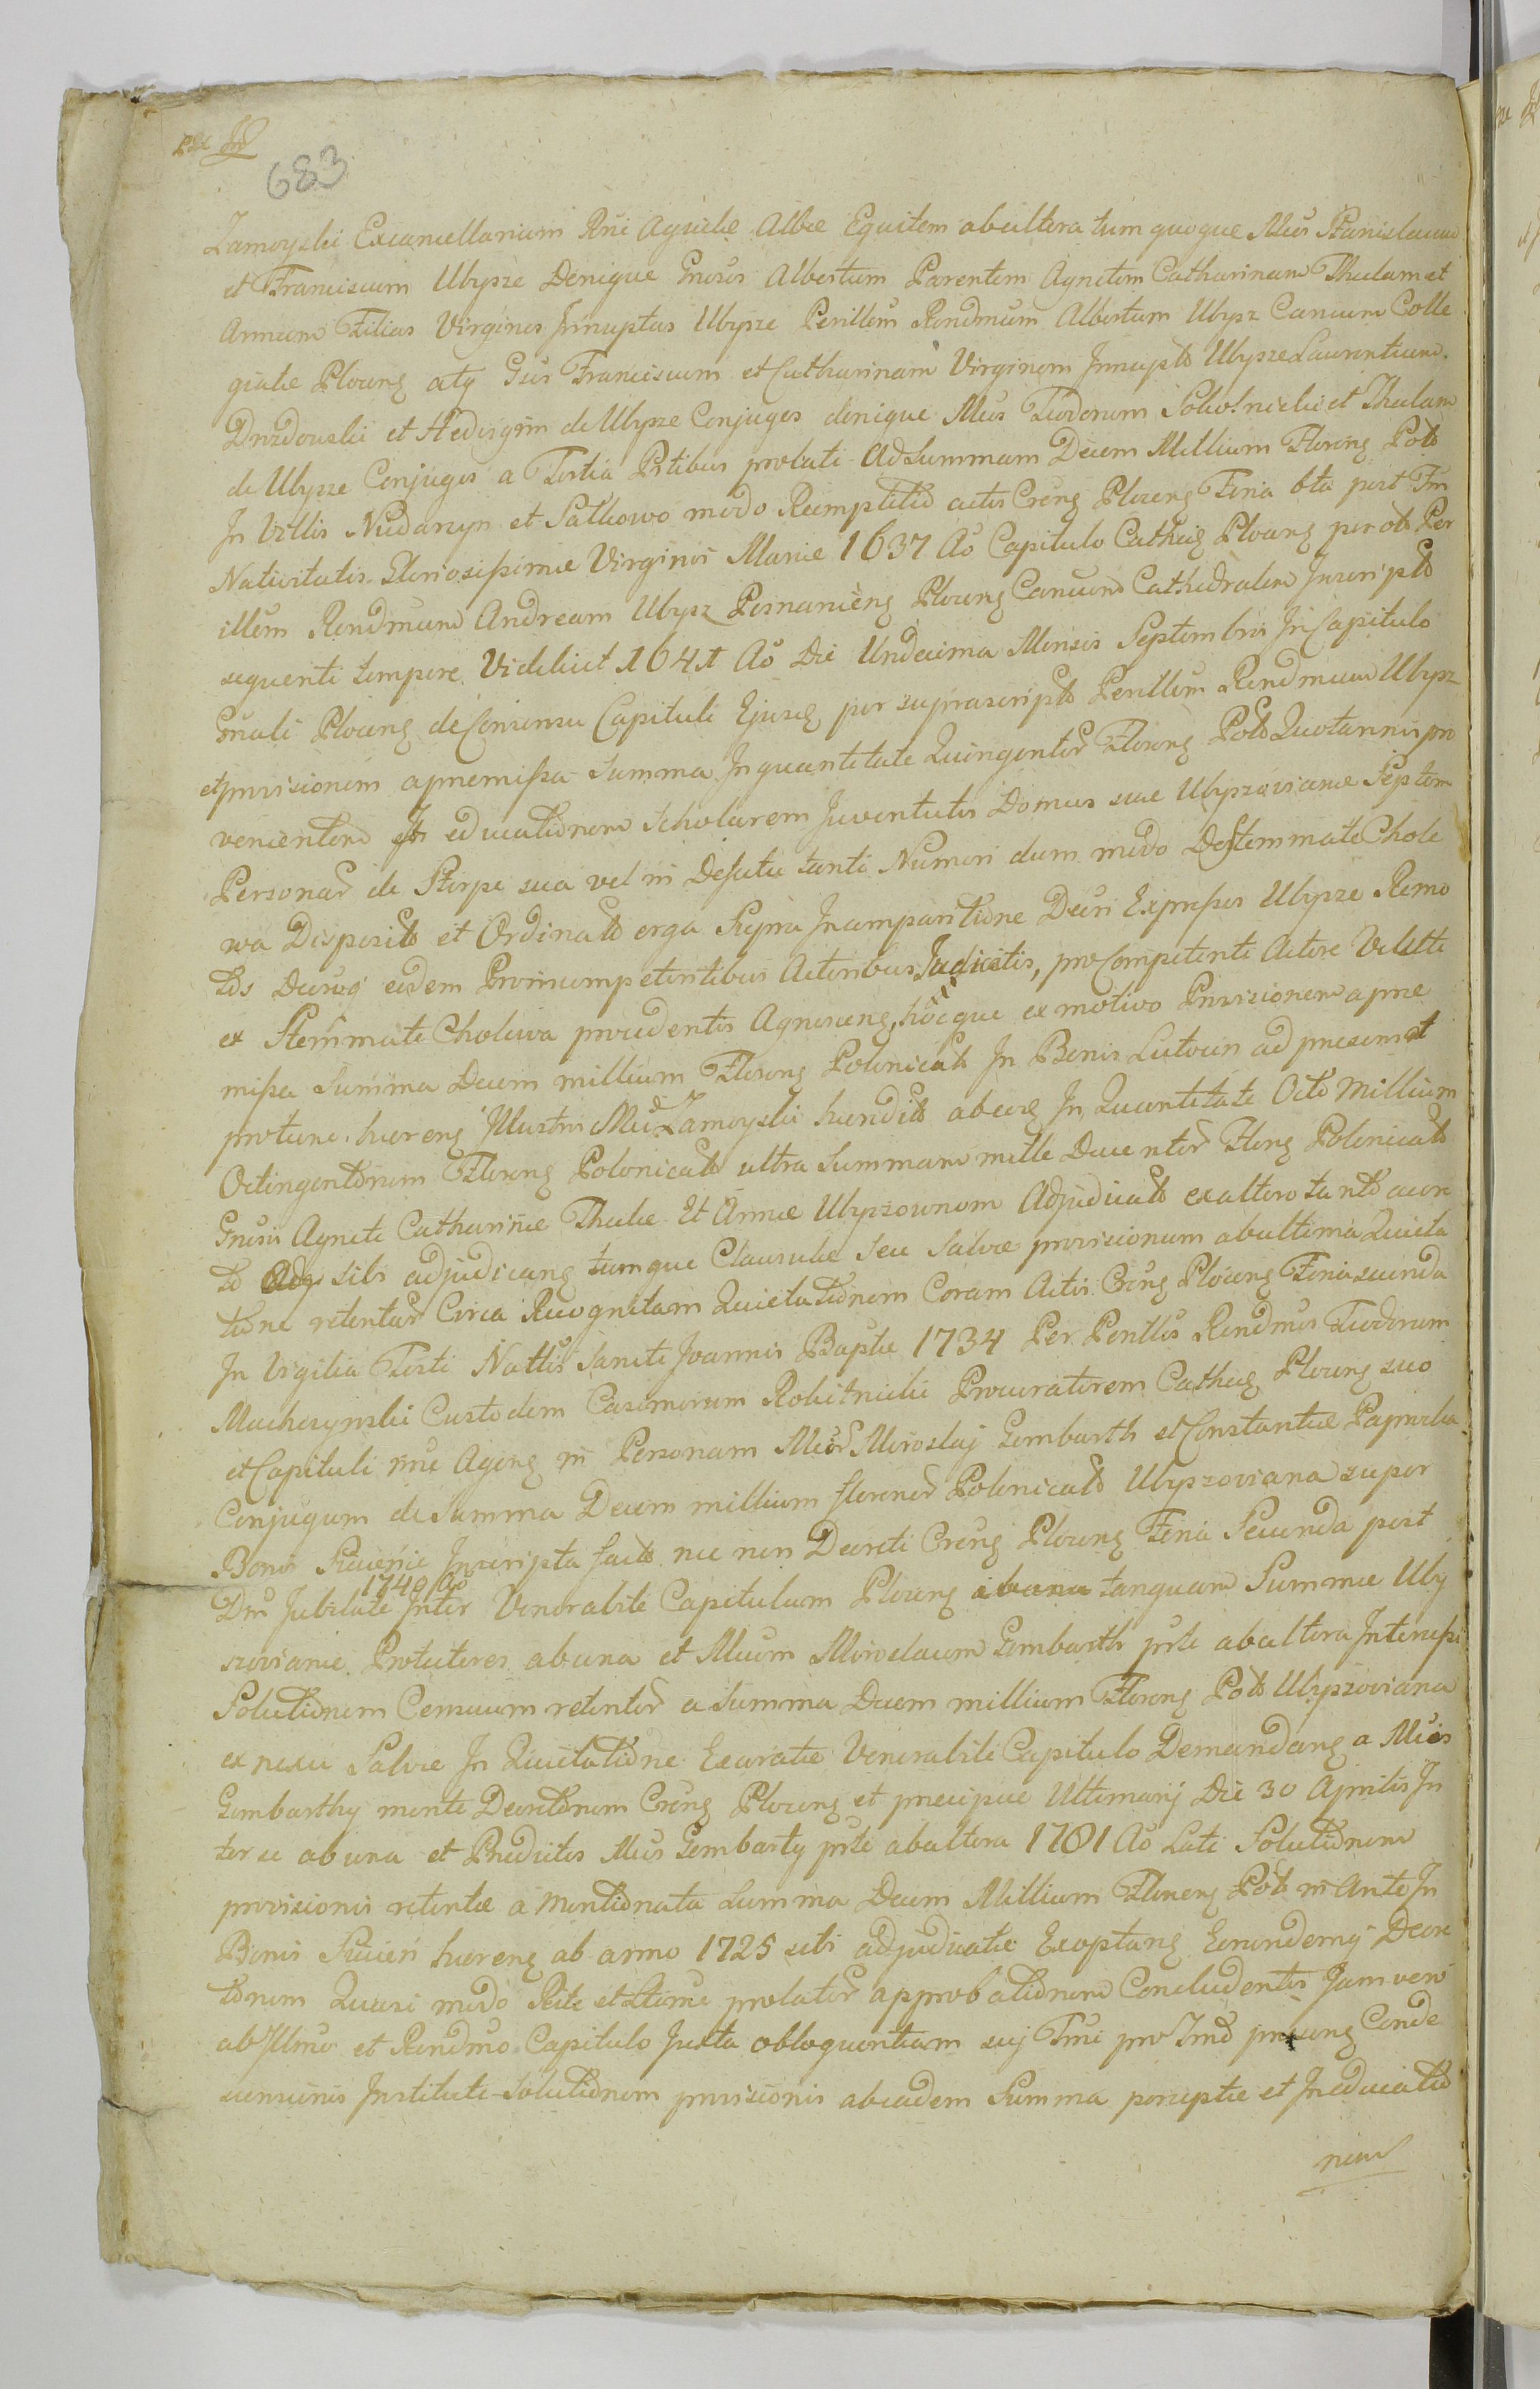 683
Zamoyski Excancellarium Rni Aquilae Albae Equitem abaltera tum quoque Mcos Stanislaum
et Franciscum Ubysze Denique Gnosos Albertum Parentem Agnetem Catharinam Theclam et
Annam Filias Virgines Innuptas Ubysze Perillem Rendmum Albertum Ubysz Canum Colle
giatae Plocens atq Gsos Franciscum et Catharinam Virginem Innupto Ubysze Laurentium
Drozdowski et Hedvigim de Ubysze Conjuges denique Mcos Teodorum Sokolnicki et Theclam
de Ubysze Conjuges a Tertia Ptibus prolati Ad Summam Decem Millium Floreng Polo
In Villis Niedarzyn et Satkowo modo Reemptitio actis Creng Ploceng Feria 6ta post Fm
Nativitatis Gloriosissimae Virginis Mariae 1637 Ao Capitulo Cathedg Plocang per olo Per
illem Rendmum Andream Ubysz Posnanieng Ploceng Canum Cathedralem Inscripto
sequenti tempore Videlicet 1641 Ao Die Undecima Mensis Septembris In Capitulo
Gnali Ploceng de Consensu Capituli Ejusq per suprascripto Perillem Rendmum Ubysz
et provisionem a praemissa Summa In quantitate Quingentor Floreng Polo Quotannis pro
venientem In educationem Scholarem Juventutis Domus suae Ubyszovianae Septem
Personar de Stirpe sua vel in Defectu tanti Numeri dum modo De Stemmate Chole
wa Disposito et Ordinato erga Supra Incomparitione Decri Expressos Ubysze Remo
tos Decrq eidem Pro incompetentibus Actoribus Judicatis, pro Competenti Actore Velatti
ex Stemmate Cholewa procedentis Agnosceng, hocque ex motivo Provisionem a prae
missa Summa Decem millium Floreng Polonicalo In Bonis Lutocin ad praesens et
protunc haereng Illustris Mci Zamoyski haeredito abeuq In Quantitate Octo Millium
Octingentorum Floreng Polonicalo ultra Summam mille Ducentor Floreng Polonicalo
Gnosis Agneti Catharinae Theclae Et Annae Ubyszownom Adjudicato ex altero tanto acon
to sibi adjudicang tumque Clausulae Seu Salvae provisionum ab ultima Quieta
tione retentar Circa Recognitam Quietationem Coram Actis Creng Ploceng Feria secunda
In Vigilia Festi Nattis Sancti Joannis Baptae 1734 Per Perilles Rendmos Teodorum
Mochczynski Custodem Casimirum Rokitnicki Procuratorem Cathedg Ploceng suo
et Capituli nne Ageng in Personam Mcor Miroslaj Gembarth et Constantiae Paprocka
Conjugum de Summa Decem millium florenor Polonicalo Ubyszoviana super
Bonis Sucienie Inscripta facto nec non Decreti Creng Ploceng Feria Secunda post
Dm Jubilate 1740 Ao Inter Venerabile Capitulum Ploceng abuna tanquam Summae Uby
szovianae Protutores abuna et Mcum Miroslaum Gembarth prte abaltera Intercessi
Solutionem Censuum retentor a Summa Decem millium Floreng Polo Ubyszoviana
ex nexu Salvae In Quietatione Exaratae Venerabili Capitulo Demandang a Mcis
Gembarthy mente Decretorum Creng Ploceng et praecipue Ultimarij Die 30 Aprilis In
ter se abuna et Praedictos Mcos Gembarty prte abaltera 1781 Ao Lati Solutionem
provisionis retentae a mentionata Summa Decem Millium Floreng Polo in Ante In
Bonis Sucien haereng ab anno 1725 sibi adjudicatae Exoptang Eorundemq Decre
torum Quasi modo Rite et Ltime prolator approbationem Concludentis Jam vero
ab Illmo et Rendmo Capitulo Juxta obloquentiam suj Tmi pro Imo praesenq Conde
scensionis Instituti Solutionem provisionis abeadem Summa perceptae et In educatio
nem